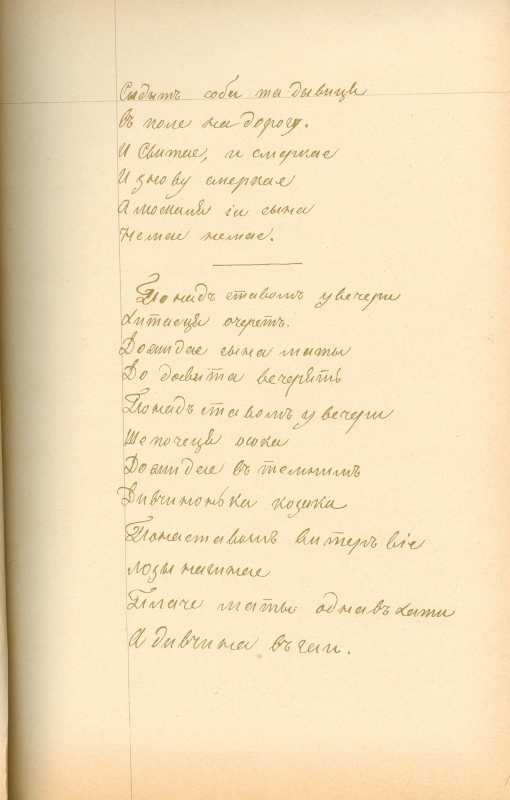 Сыдыть соби та дывицця
въ поле на дорогу.
И Свитае, и смеркае
И знову смеркае
А москаля іи сына
Немае немае.
Понадъ ставомъ увечери
Хитаецця очеретъ.
Дожидае сына маты
До досвита вечерять
Понадъ ставомъ увечери
Шепочецця осока
Дожидае въ темнимъ
Дивчинонька козака
Понаставомъ витеръ віе
лозы нагинае
Плаче маты одна въ хати
А дивчина въ гаи.